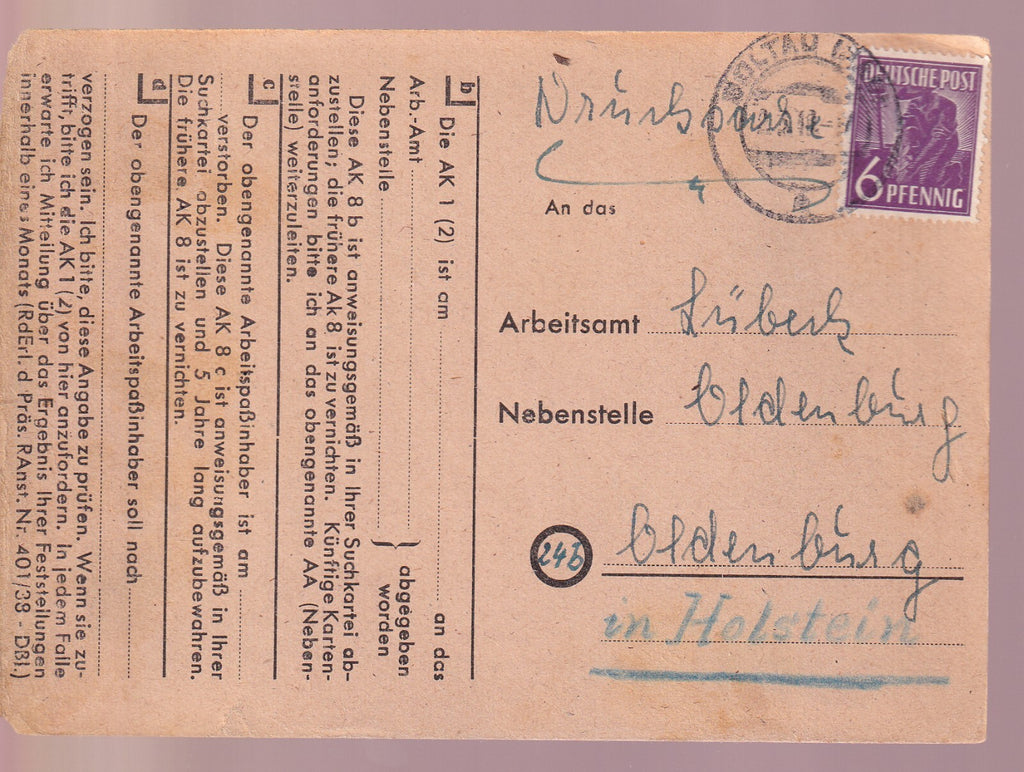 b Die AK 1 (2) ist am an das
Arb.-Amt
Nebenstelle
abgegeben
worden
Diese AK 8 b ist anweisungsgemäß in Ihrer Suchkartei ab-
zustellen; die frühere Ak 8 ist zu vernichten. Künftige Karten-
anforderungen bitte ich an das obengenannte AA (Neben-
stelle) weiterzuleiten.
c Der obengenannte Arbeitspaßinhaber ist am
verstorben. Diese AK 8 c ist anweisungsgemäß in Ihrer
Suchkartei abzustellen und 5 Jahre lang aufzubewahren.
Die frühere AK 8 ist zu vernichten.
d Der obengenannte Arbeitspaßinhaber soll nach
verzogen sein. Ich bitte, diese Angabe zu prüfen. Wenn sie zu-
trifft, bitte ich die AK 1 (2) von hier anzufordern. In jedem Falle
erwarte ich Mitteilung über das Ergebnis Ihrer Feststellungen
innerhalb eines Monats (RdErl. d Präs. RAnst. Nr. 401/38 - DBl.)
Drucksache
SOLTAU
DEUTSCHE POST
6 PFENNIG
An das
Arbeitsamt Lübeck
Nebenstelle Oldenburg
24b Oldenburg
in Holstein